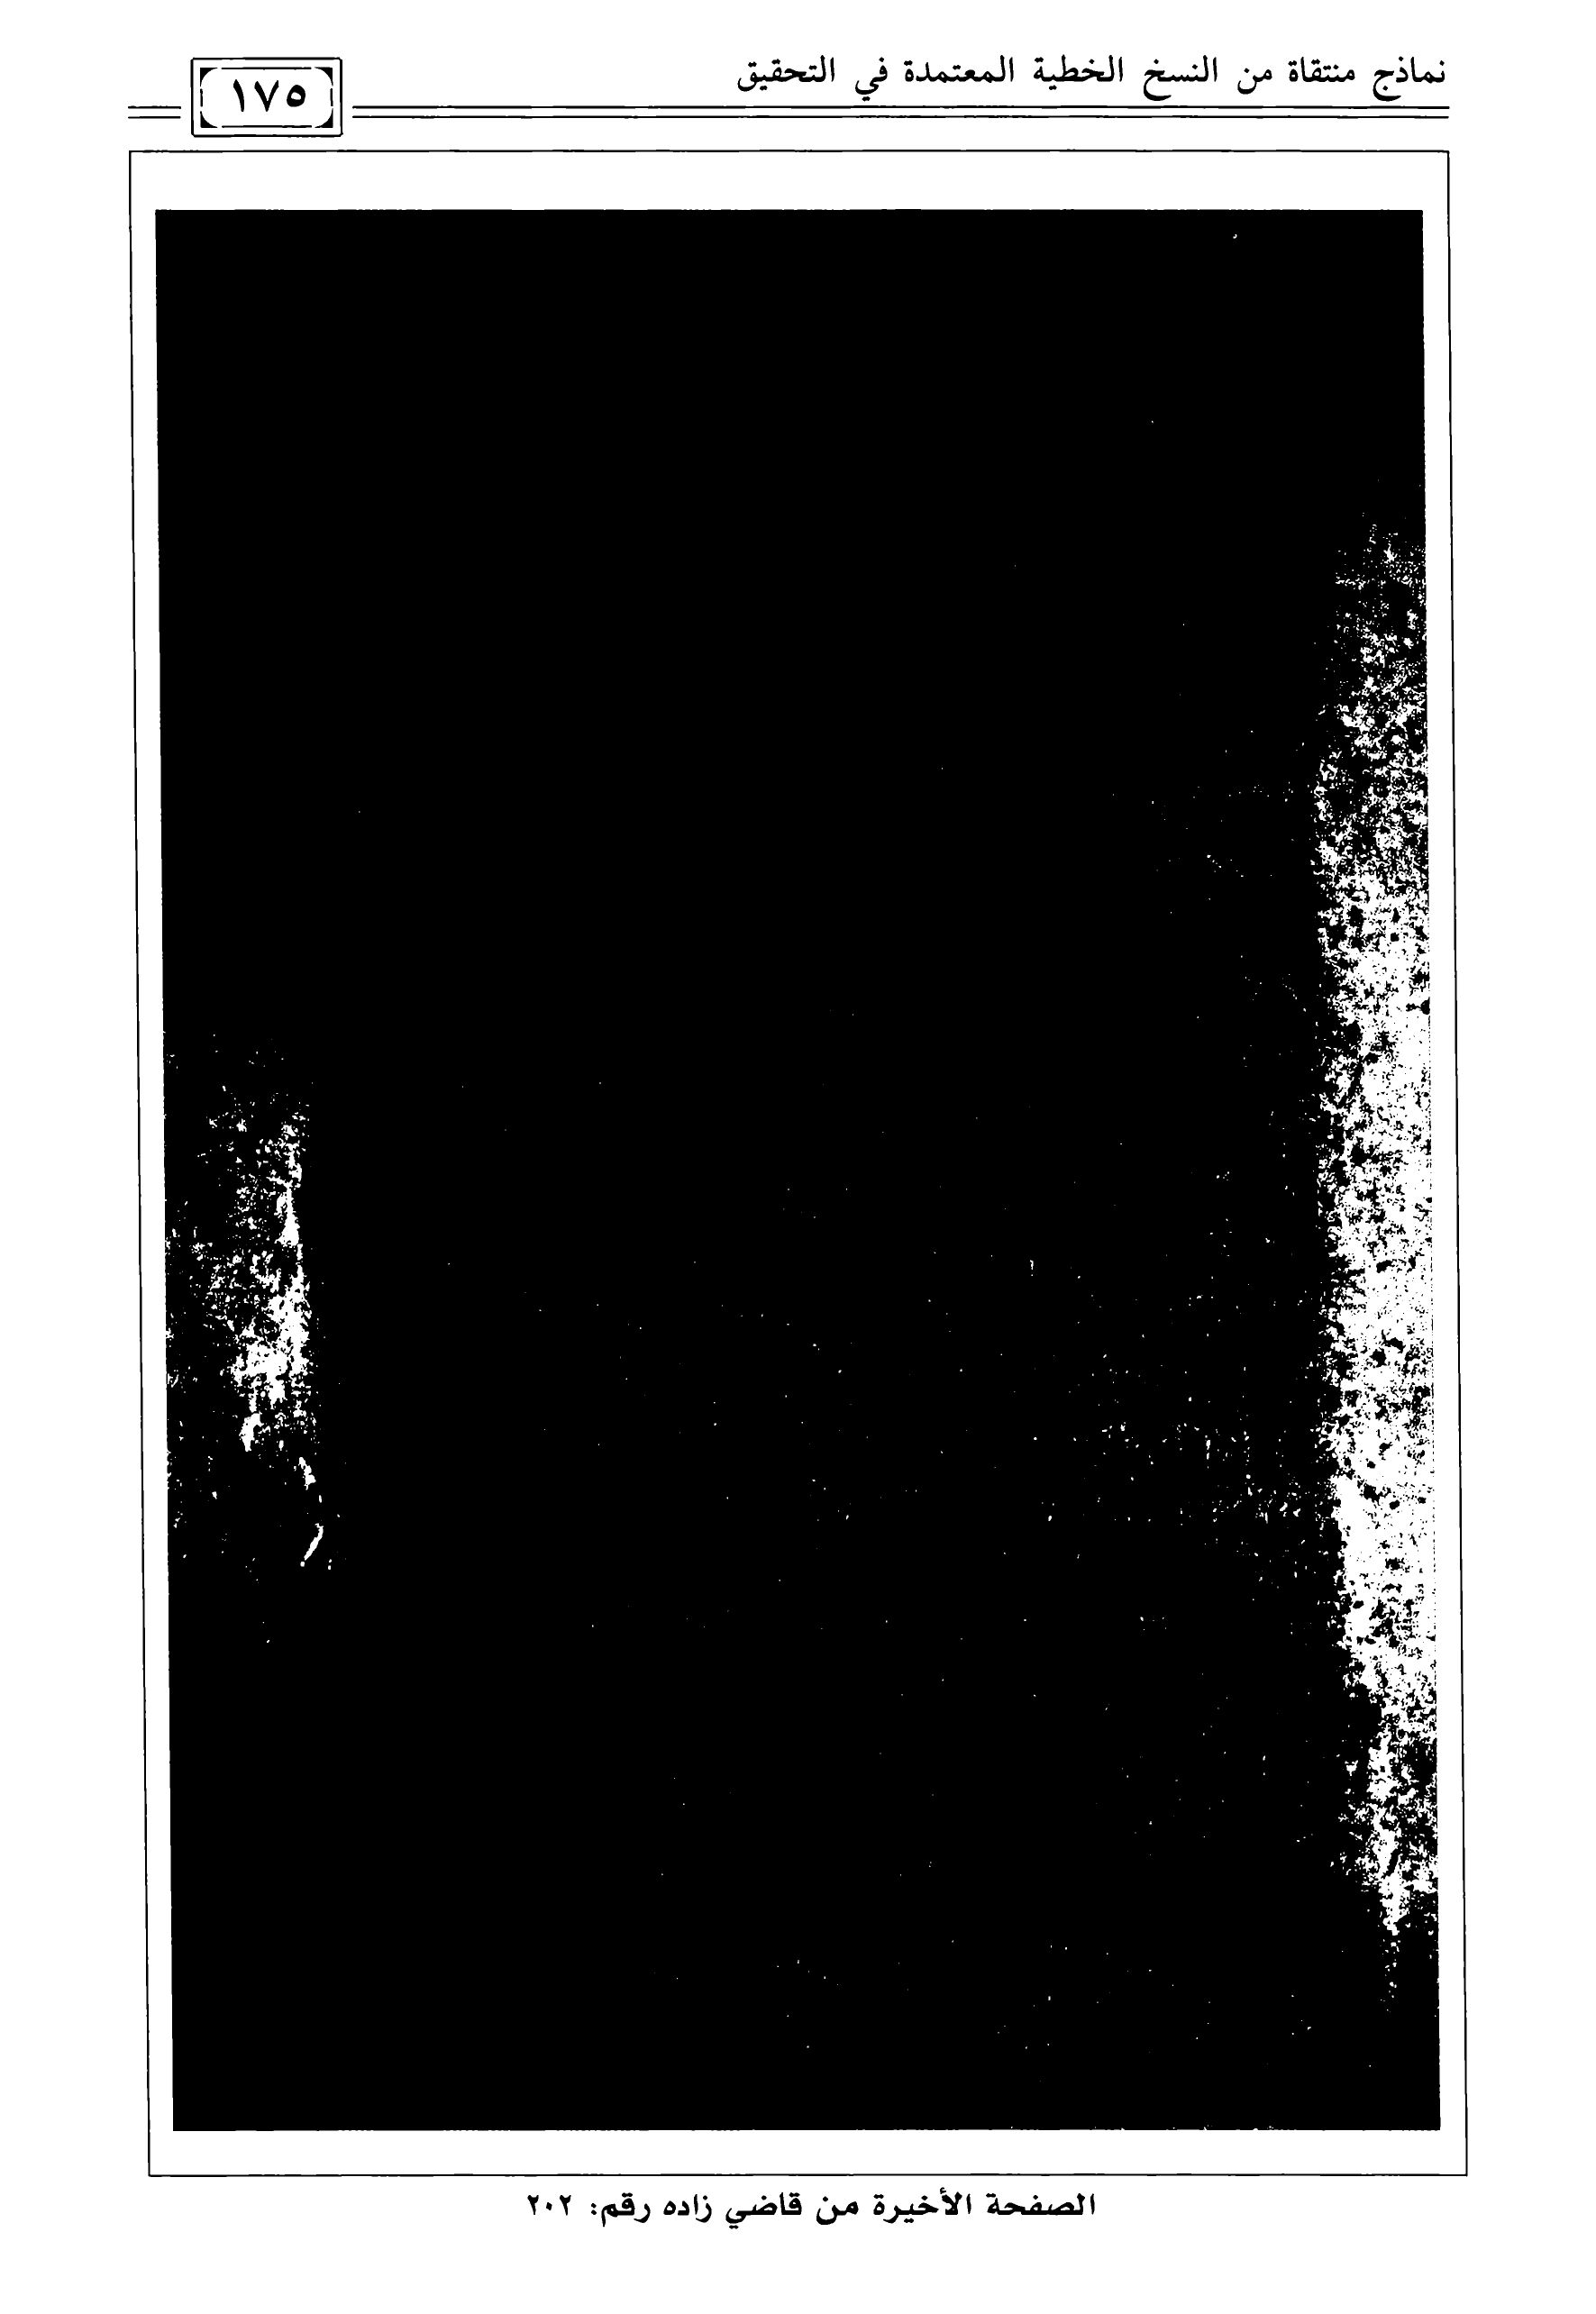 نماذج منتقاة من النسخ الخطية المعتمدة في التحقيق
١٧٥
الصفحة الأخيرة من قاضي زاده رقم: ٢٠٢